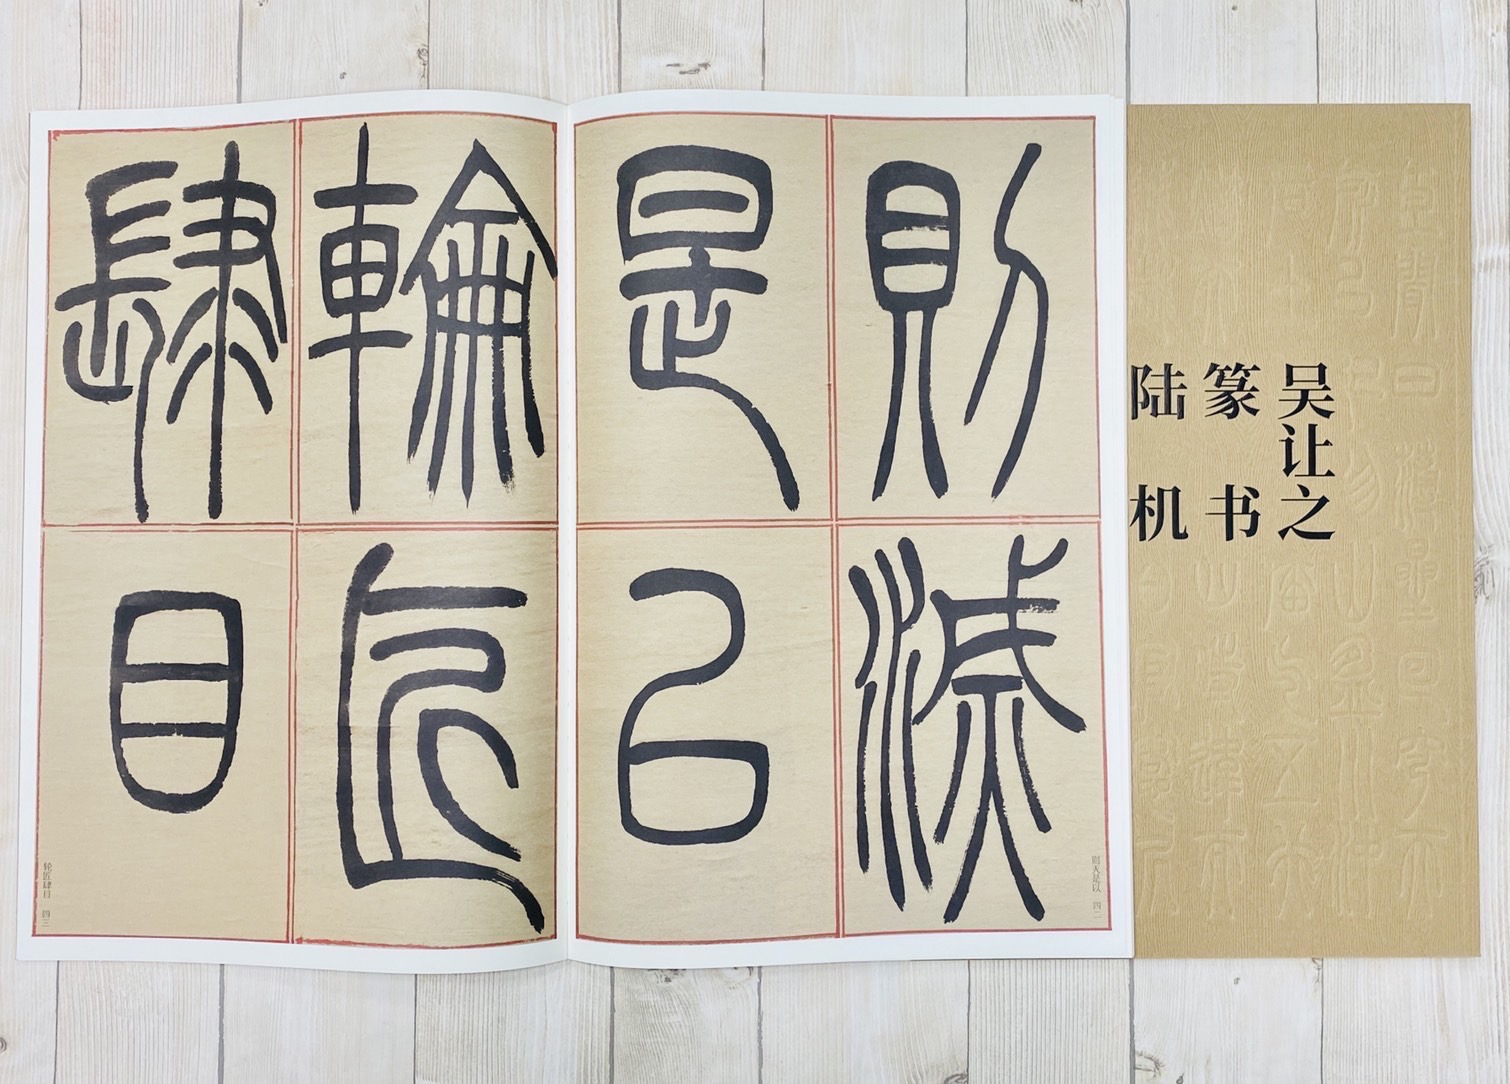 則滅
是以
輪匠
肆目
则灭是以 四二
轮匠肆目 四三
吴让之
篆书
陆机